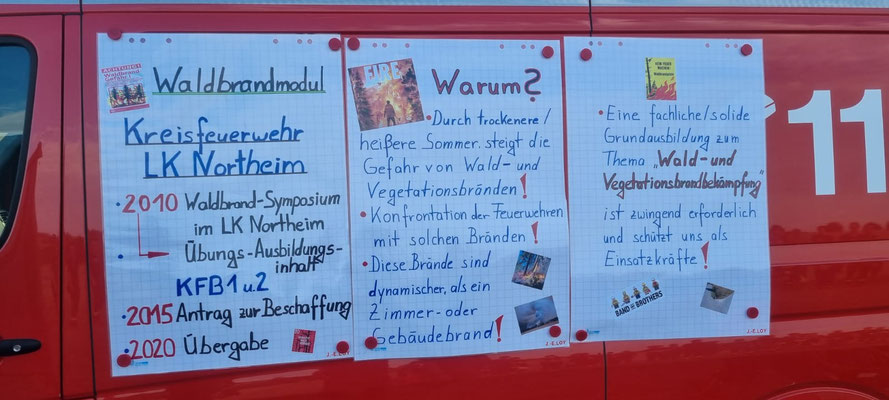 ACHTUNG!
Waldbrand
Gefahr!
Waldbrandmodul
Kreisfeuerwehr
LK Northeim
• 2010 Waldbrand-Symposium
im LK Northeim
Übungs-Ausbildungs-
inhalt
KFB 1 u. 2
• 2015 Antrag zur Beschaffung
• 2020 Übergabe
J.-E. LOY
FIRE
Warum?
• Durch trockenere/
heißere Sommer. steigt die
Gefahr von Wald- und
Vegetationsbränden!
• Konfrontation der Feuerwehren
mit solchen Bränden!
• Diese Brände sind
dynamischer, als ein
Zimmer- oder
Gebäudebrand!
J.-E. LOY
• Eine fachliche/solide
Grundausbildung zum
Thema „Wald- und
Vegetationsbrandbekämpfung"
ist zwingend erforderlich
und schützt uns als
Einsatzkräfte!
BAND OF BROTHERS
J.-E. LOY
11